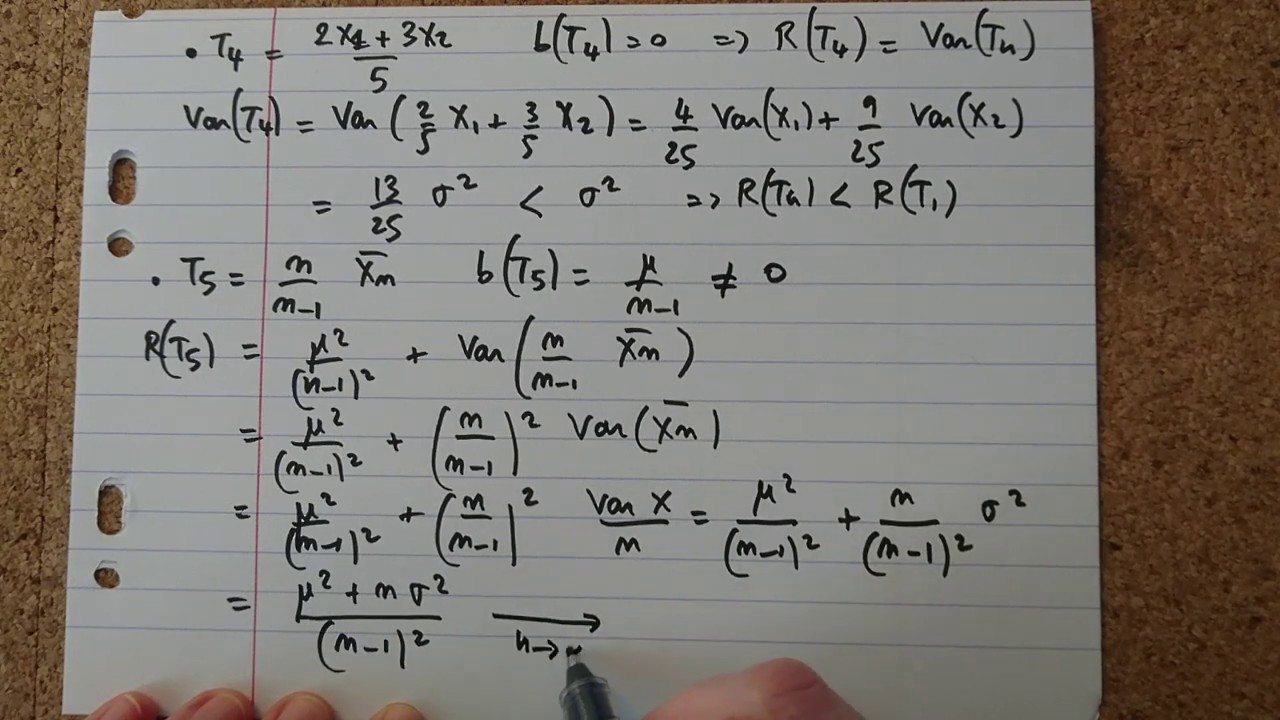 • T₄ = (2X₁ + 3X₂)/5   b(T₄) = 0 ⇒ R(T₄) = Var(T₄)
Var(T₄) = Var(2/5 X₁ + 3/5 X₂) = 4/25 Var(X₁) + 9/25 Var(X₂)
= 13/25 σ² < σ² ⇒ R(T₄) < R(T₁)
• T₅ = n/(n-1) X̄n   b(T₅) = μ/(n-1) ≠ 0
R(T₅) = μ²/(n-1)² + Var(n/(n-1) X̄n)
= μ²/(n-1)² + (n/(n-1))² Var(X̄n)
= μ²/(n-1)² + (n/(n-1))² Var X/n = μ²/(n-1)² + n/(n-1)² σ²
= (μ² + n σ²)/(n-1)² ⟶ n→